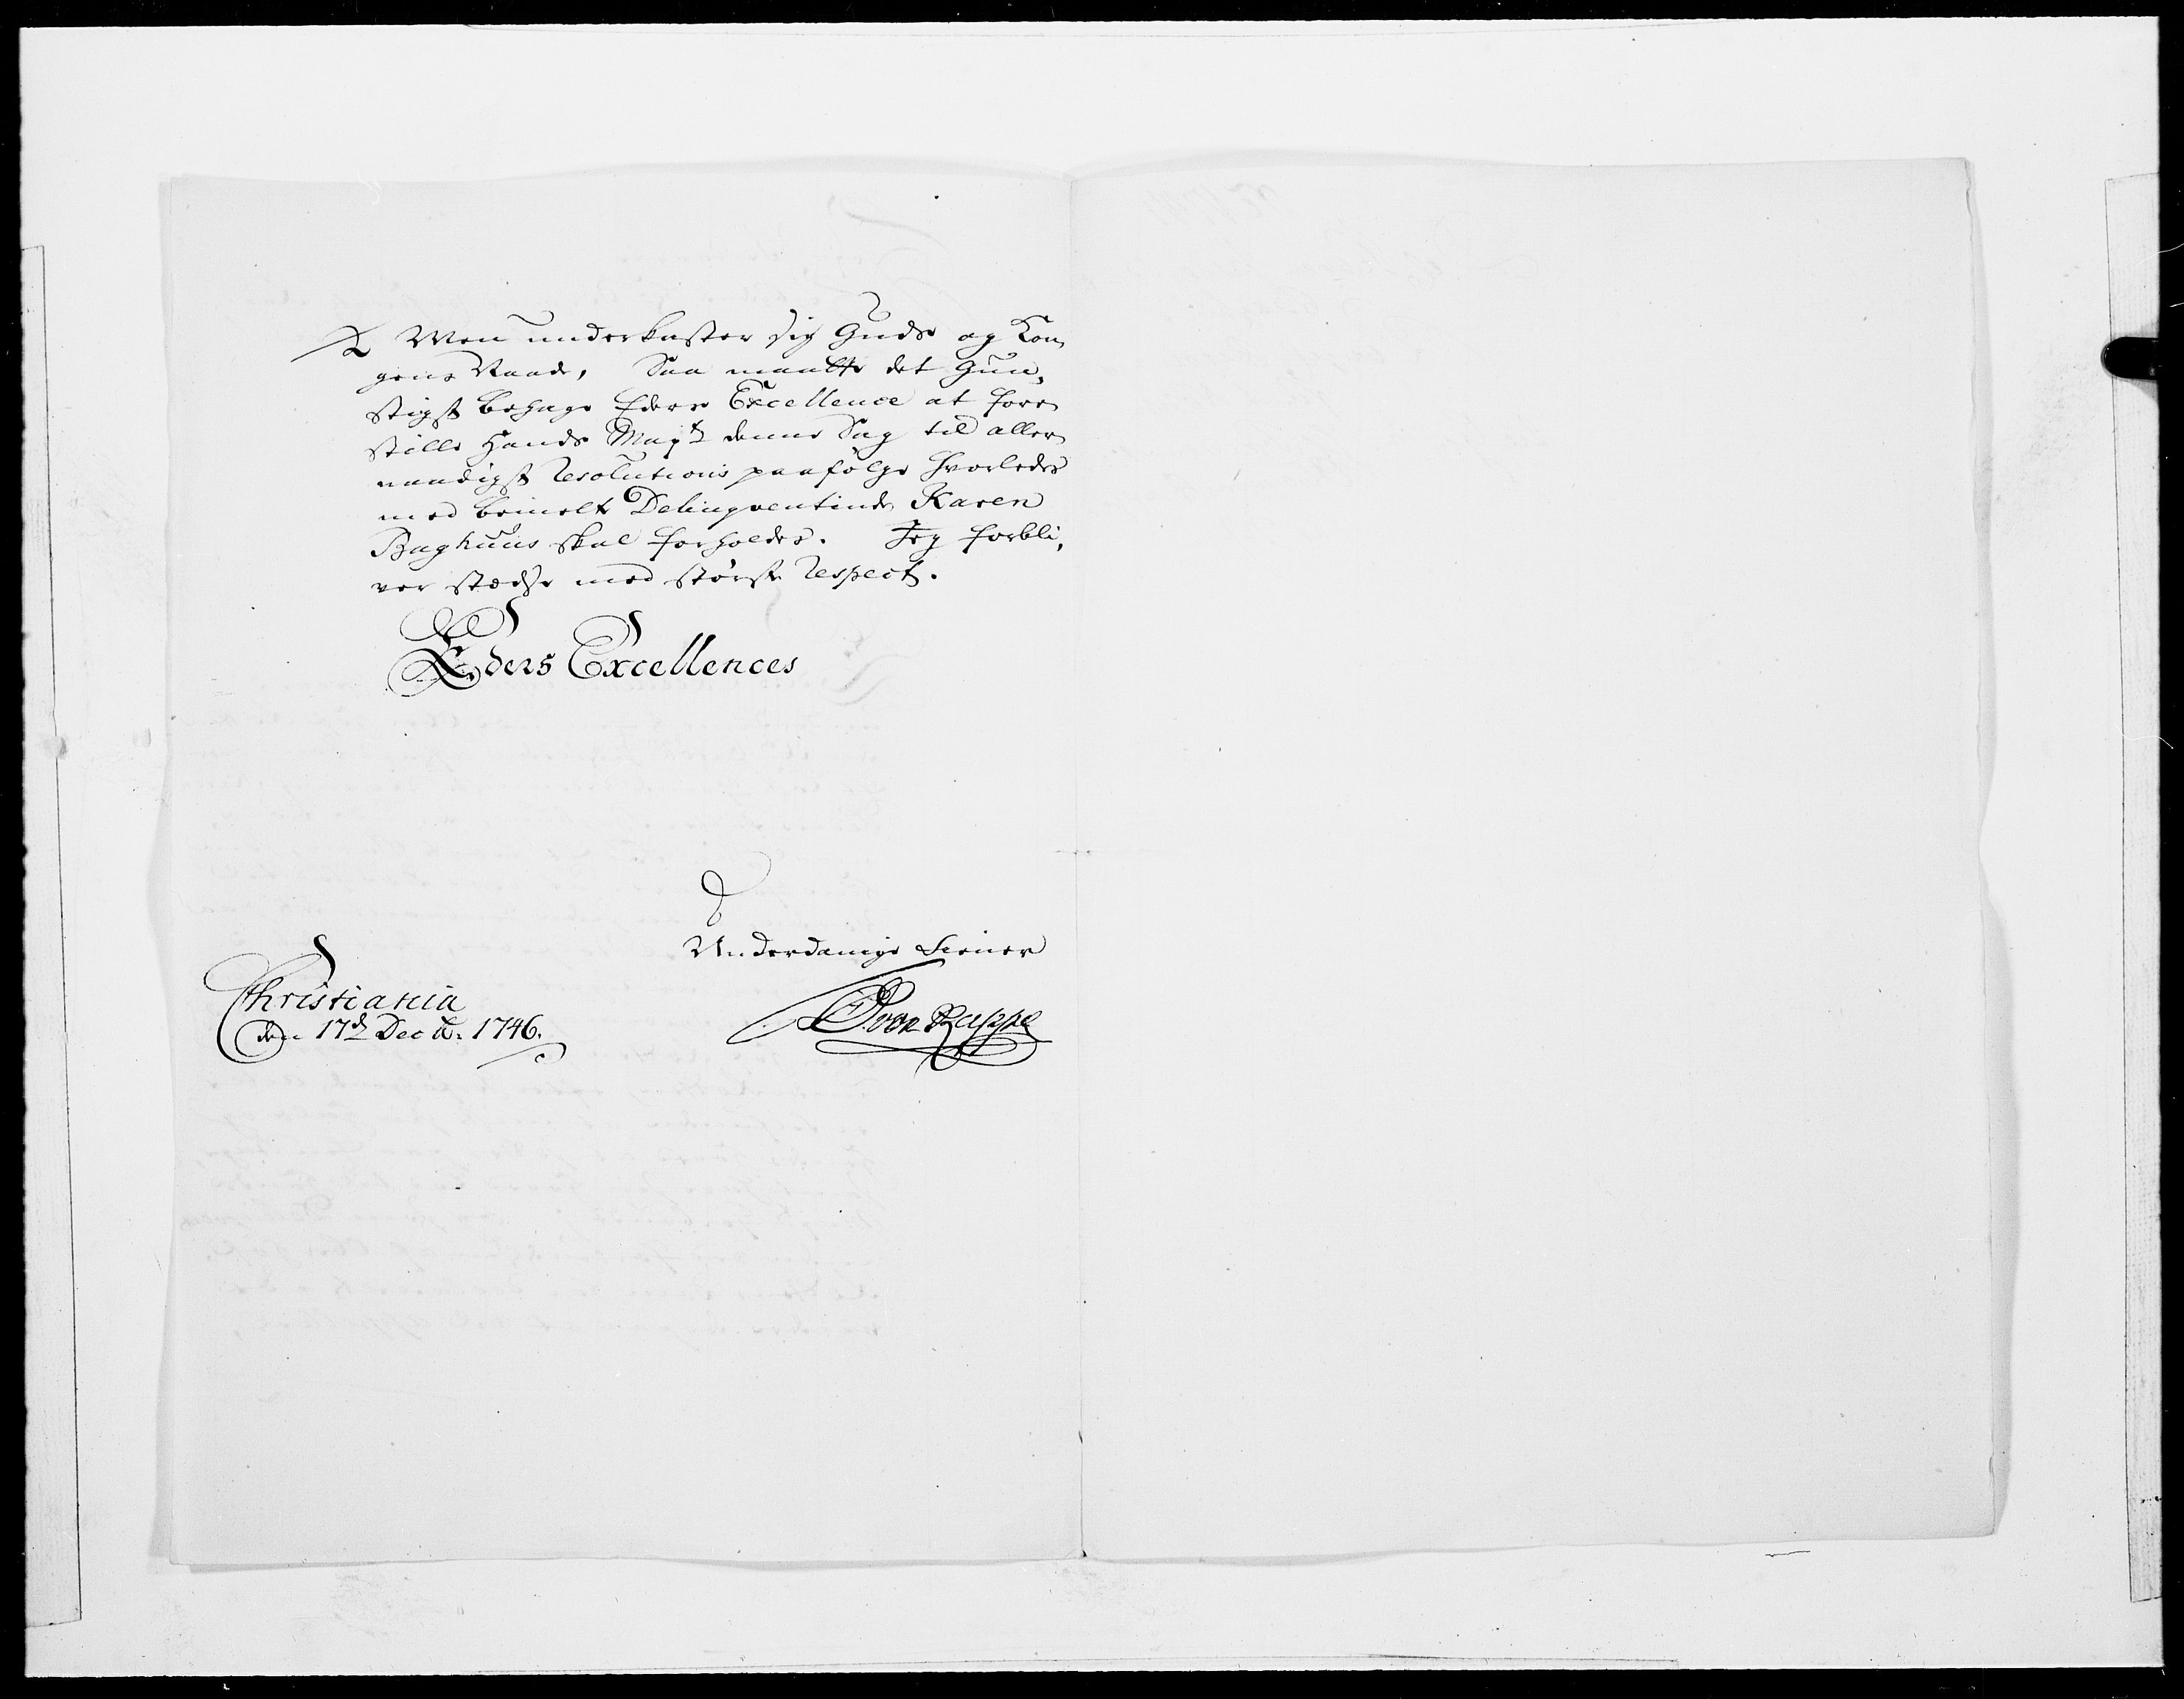 Men underkaster sig Guds og Kon
gens Naade, Saa maatte det Gun,
stigst behage Eders Excellence at fore
stille Hands Mayts denne Sag til aller
naadigst Resolutions paafølge hvorledes
med bemelte Delinqventinde Karen
Baghuus skal forholdes. Jeg forbli,
ver stædse med største Respect.
Eders Excellences
Underdanige tiener
Christiania
den 17de Decbr: 1746.
von Rappe